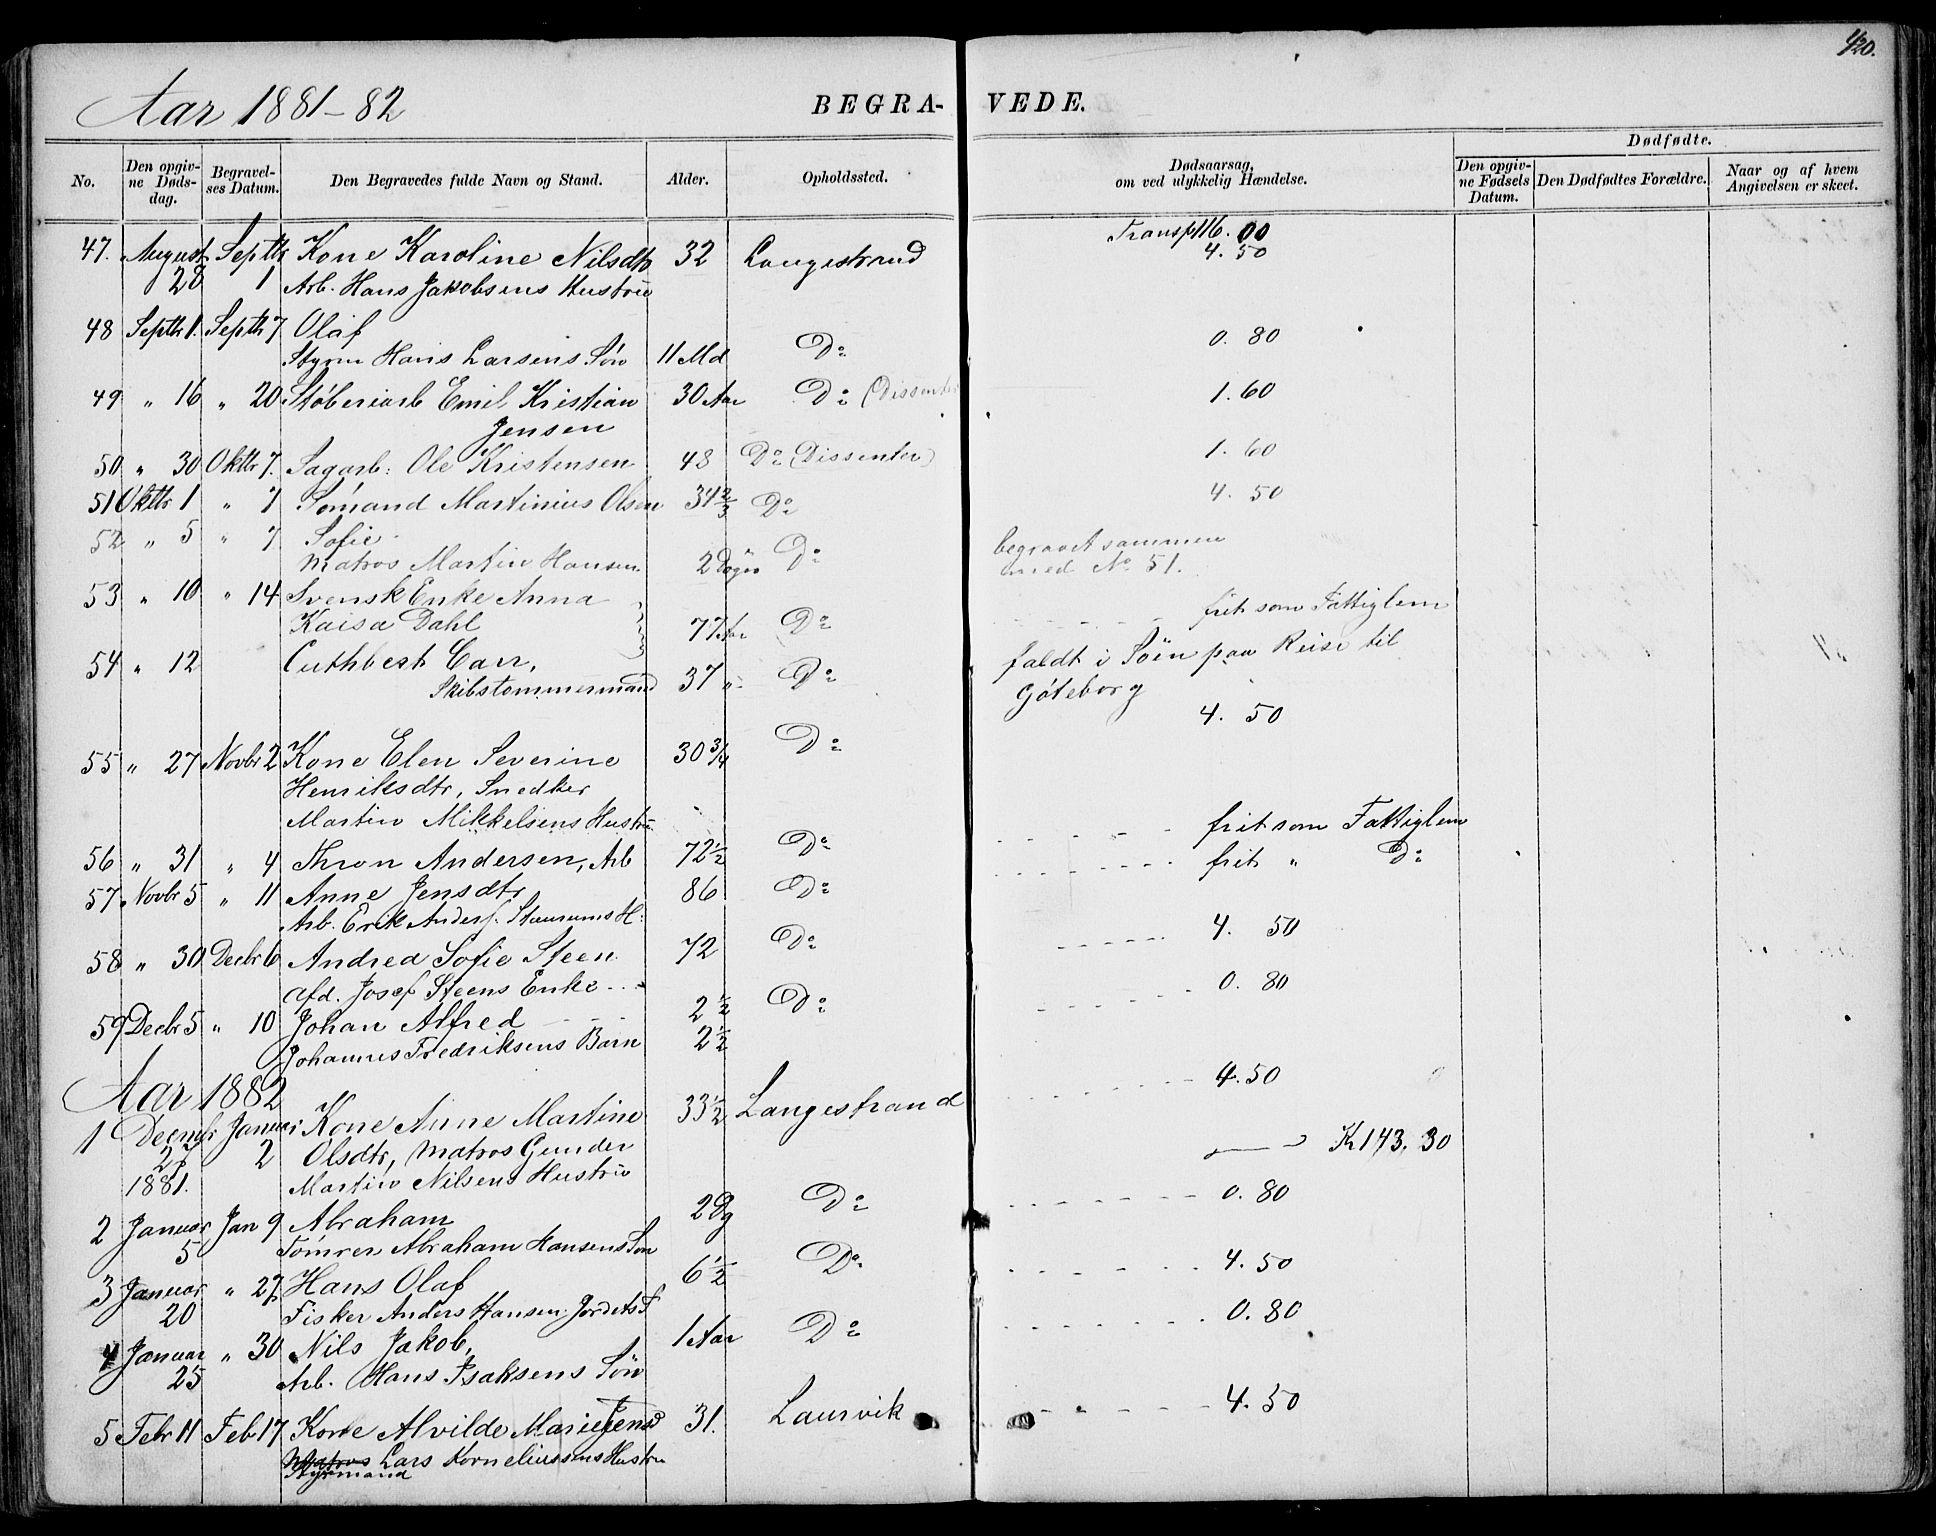 420.
Aar 1881-82
BEGRA- VEDE.
No. Den opgivne Dødsdag. Begravelses Datum. Den Begravedes fulde Navn og Stand. Alder. Opholdssted. Dødsaarsag, om ved ulykkelig Hændelse. Dødfødte. Den opgivne Fødsels Datum. Den Dødfødtes Forældre. Naar og af hvem Angivelsen er skeet.
Transp 116.00
47. August Septbr Kone Karoline Nilsdtr 32 Langestrand 4. 50
28 1 Arb. Hans Jakobsens Hustru
48 Septbr 1. Septbr 7 Olaf
Styrm Hans Larsens Søn 11 Md Do 0. 80
49 " 16 " 20 Støberiarb Emil Kristian 30 Aar Do (Dissenter 1. 60
Jensen
50 " 30 Oktbr 7. Sagarb: Ole Kristensen 48 Do (Dissenter) 1. 60
51 Oktbr 1 " 7 Sømand Martinius Olsen 34 2/3 Do 4. 50
52 " 5 " 7 Sofie
Matros Martin Hansen 2 Døgn Do begravet sammen
med No 51.
53 " 10 " 14 Svensk Enke Anna
Kaisa Dahl 77 Aar Do frit som Fattiglem
54 " 12 Cuthbert Carr, faldt i Søen paa Reise til
Skibstømmermand 37 " Do Göteborg
4. 50
55 " 27 Novbr 2 Kone Elen Severine 30 3/4 Do
Henriksdtr, Snedker
Martin Mikkelsens Hustru
56 " 31 " 4 Thron Andersen, Arb 72 1/2 Do frit som Fattiglem
57 Novbr 5 " 11 Anne Jensdtr 86 Do frit " Do
Arb. Erik Anders. Staurums H:
58 " 30 Decbr 6 Andrea Sofie Steen 72 Do 4. 50
Afd. Josef Steens Enke
59 Decbr 5 " 10 Johan Alfred 2 1/2 Do 0. 80
Johannes Fredriksens Barn 2 1/2
Aar 1882
1 Decmbr Januar Kone Anne Martine 33 1/2 Langestrand 4.50
27 2 Olsdtr, Matros Gunder K 143. 30
1881. Martin Nilsens Hustru
2 Januar Jan 9 Abraham 2 Dg Do 0. 80
5 Tømrer Abraham Hansens Søn
3 Januar " 27 Hans Olaf 6 1/2 Do 4. 50
20 Fisker Anders Hansen Jordets S
4 Januar " 30 Nils Jakob, 1 Aar Do 0. 80
25 Arb. Hans Isaksens Søn
5 Febr 11 Feb 17 Kone Alvilde Marie Jensd 31. Laurvik 4. 50
Matros Lars Korneliussens Hustru
Styrmand